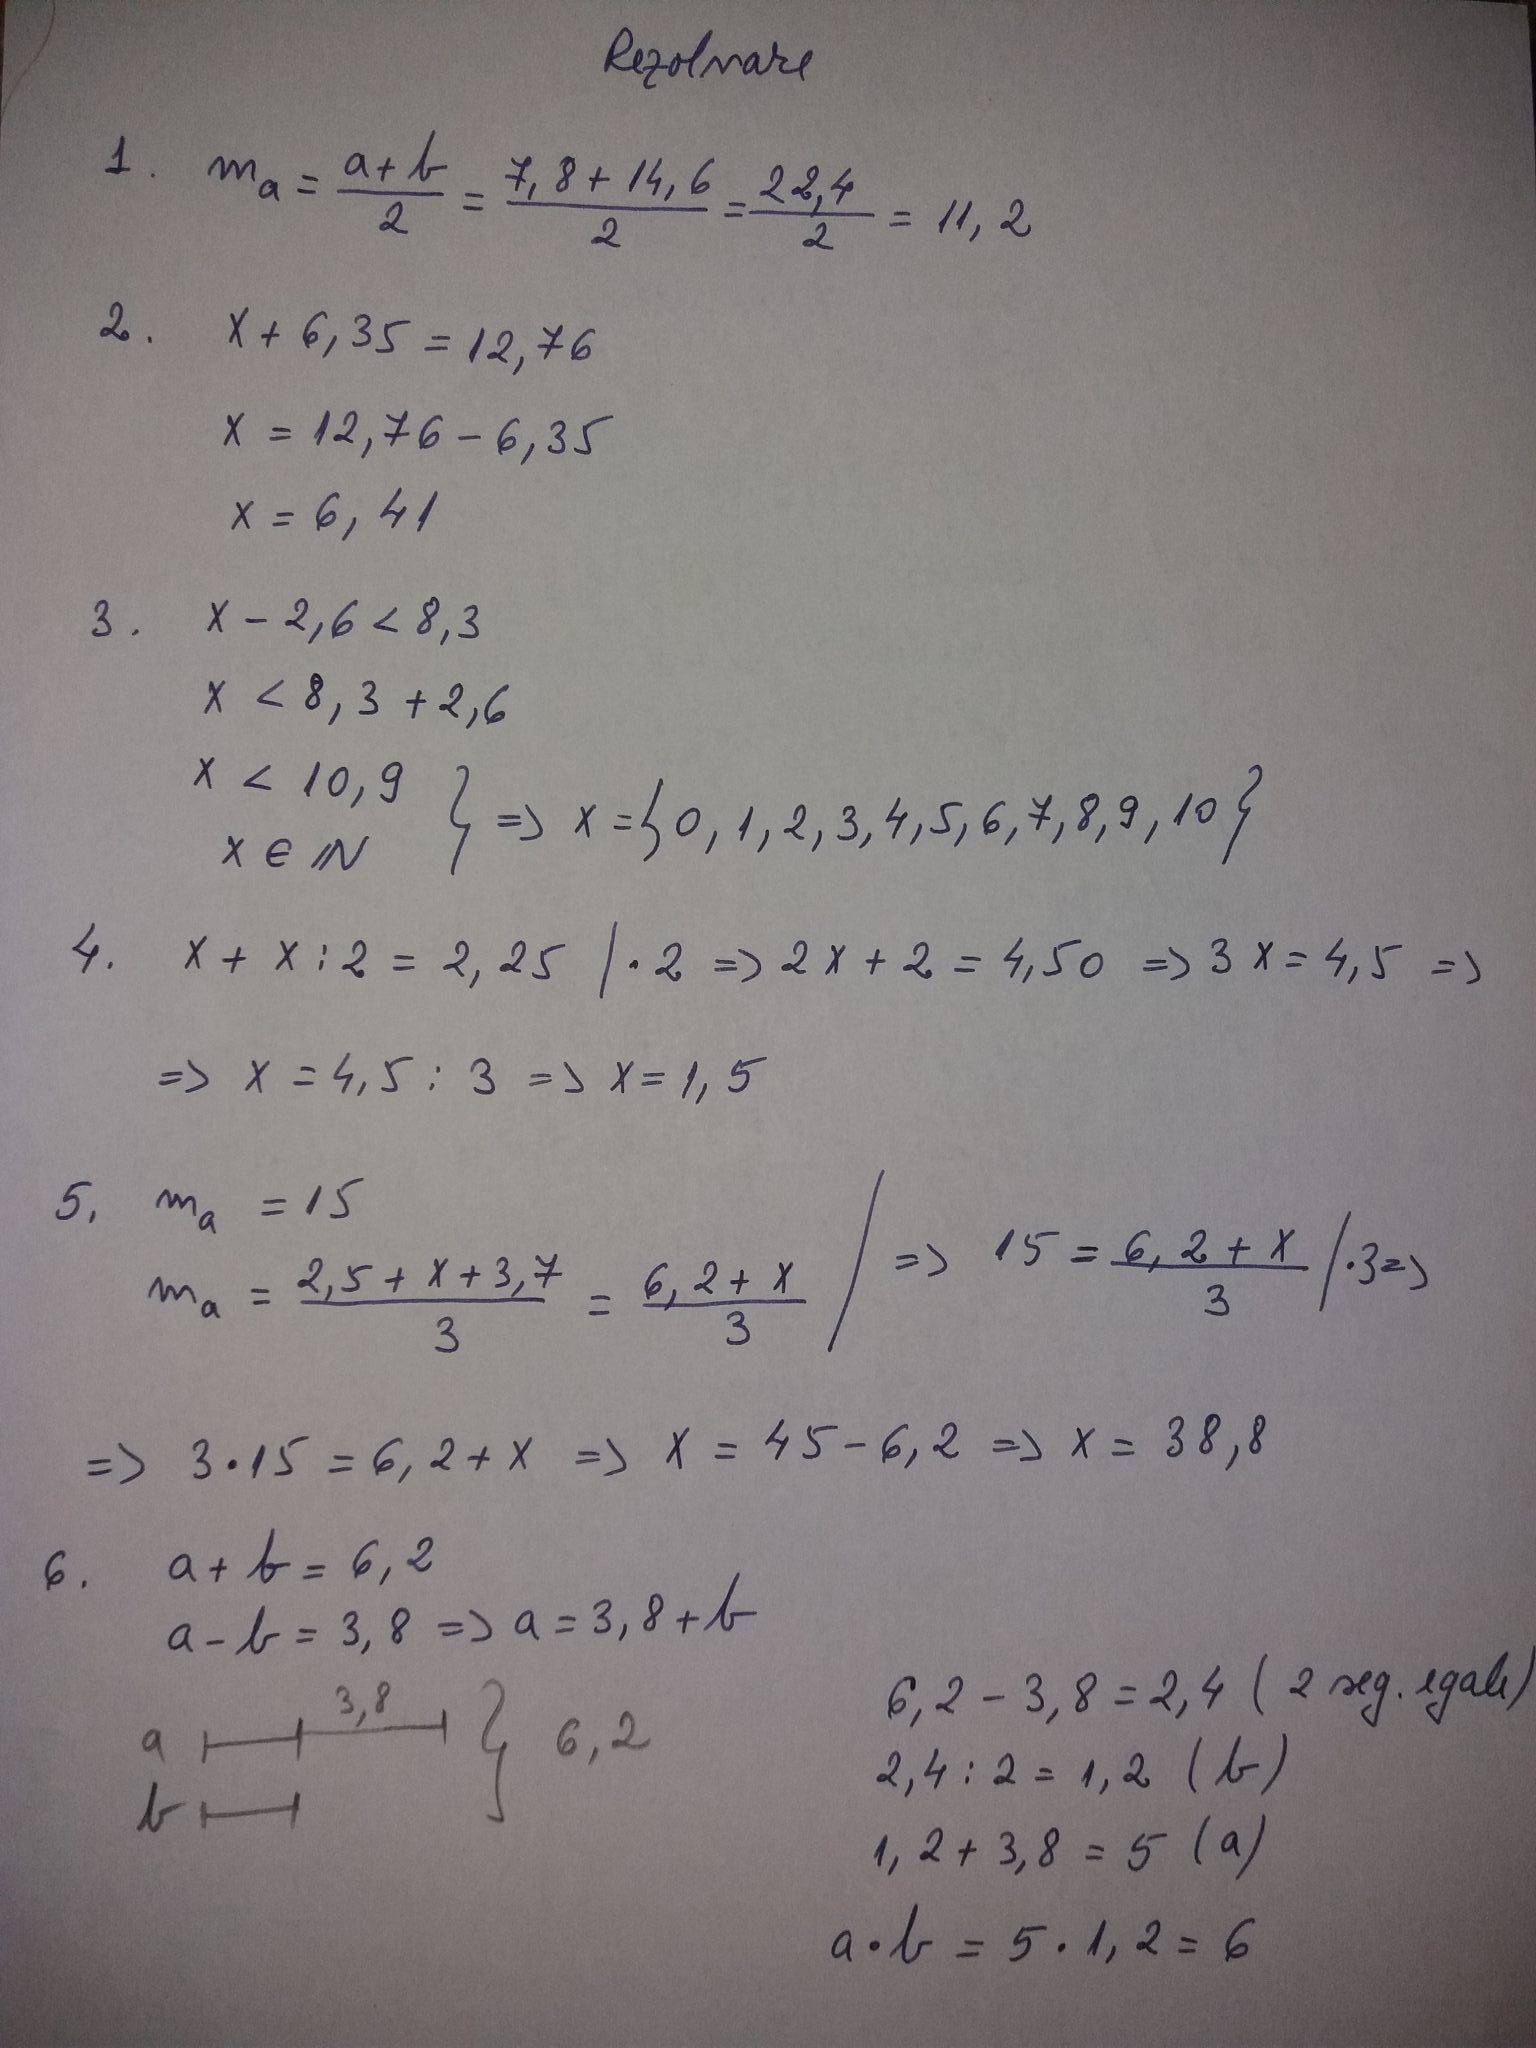 Rezolvare
1. mₐ = (a+b)/2 = (7,8+14,6)/2 = 22,4/2 = 11,2
2. x + 6,35 = 12,76
x = 12,76 - 6,35
x = 6,41
3. x - 2,6 < 8,3
x < 8,3 + 2,6
x < 10,9
x ∈ ℕ } => x = {0, 1, 2, 3, 4, 5, 6, 7, 8, 9, 10}
4. x + x : 2 = 2,25 /·2 => 2x + 2 = 4,50 => 3x = 4,5 =>
=> x = 4,5 : 3 => x = 1,5
5. mₐ = 15
mₐ = (2,5 + x + 3,7)/3 = (6,2 + x)/3 / => 15 = (6,2 + x)/3 /·3 =>
=> 3·15 = 6,2 + x => x = 45 - 6,2 => x = 38,8
6. a + b = 6,2
a - b = 3,8 => a = 3,8 + b
3,8
a
b
} 6,2
6,2 - 3,8 = 2,4 (2 seg. egale)
2,4 : 2 = 1,2 (b)
1,2 + 3,8 = 5 (a)
a·b = 5·1,2 = 6